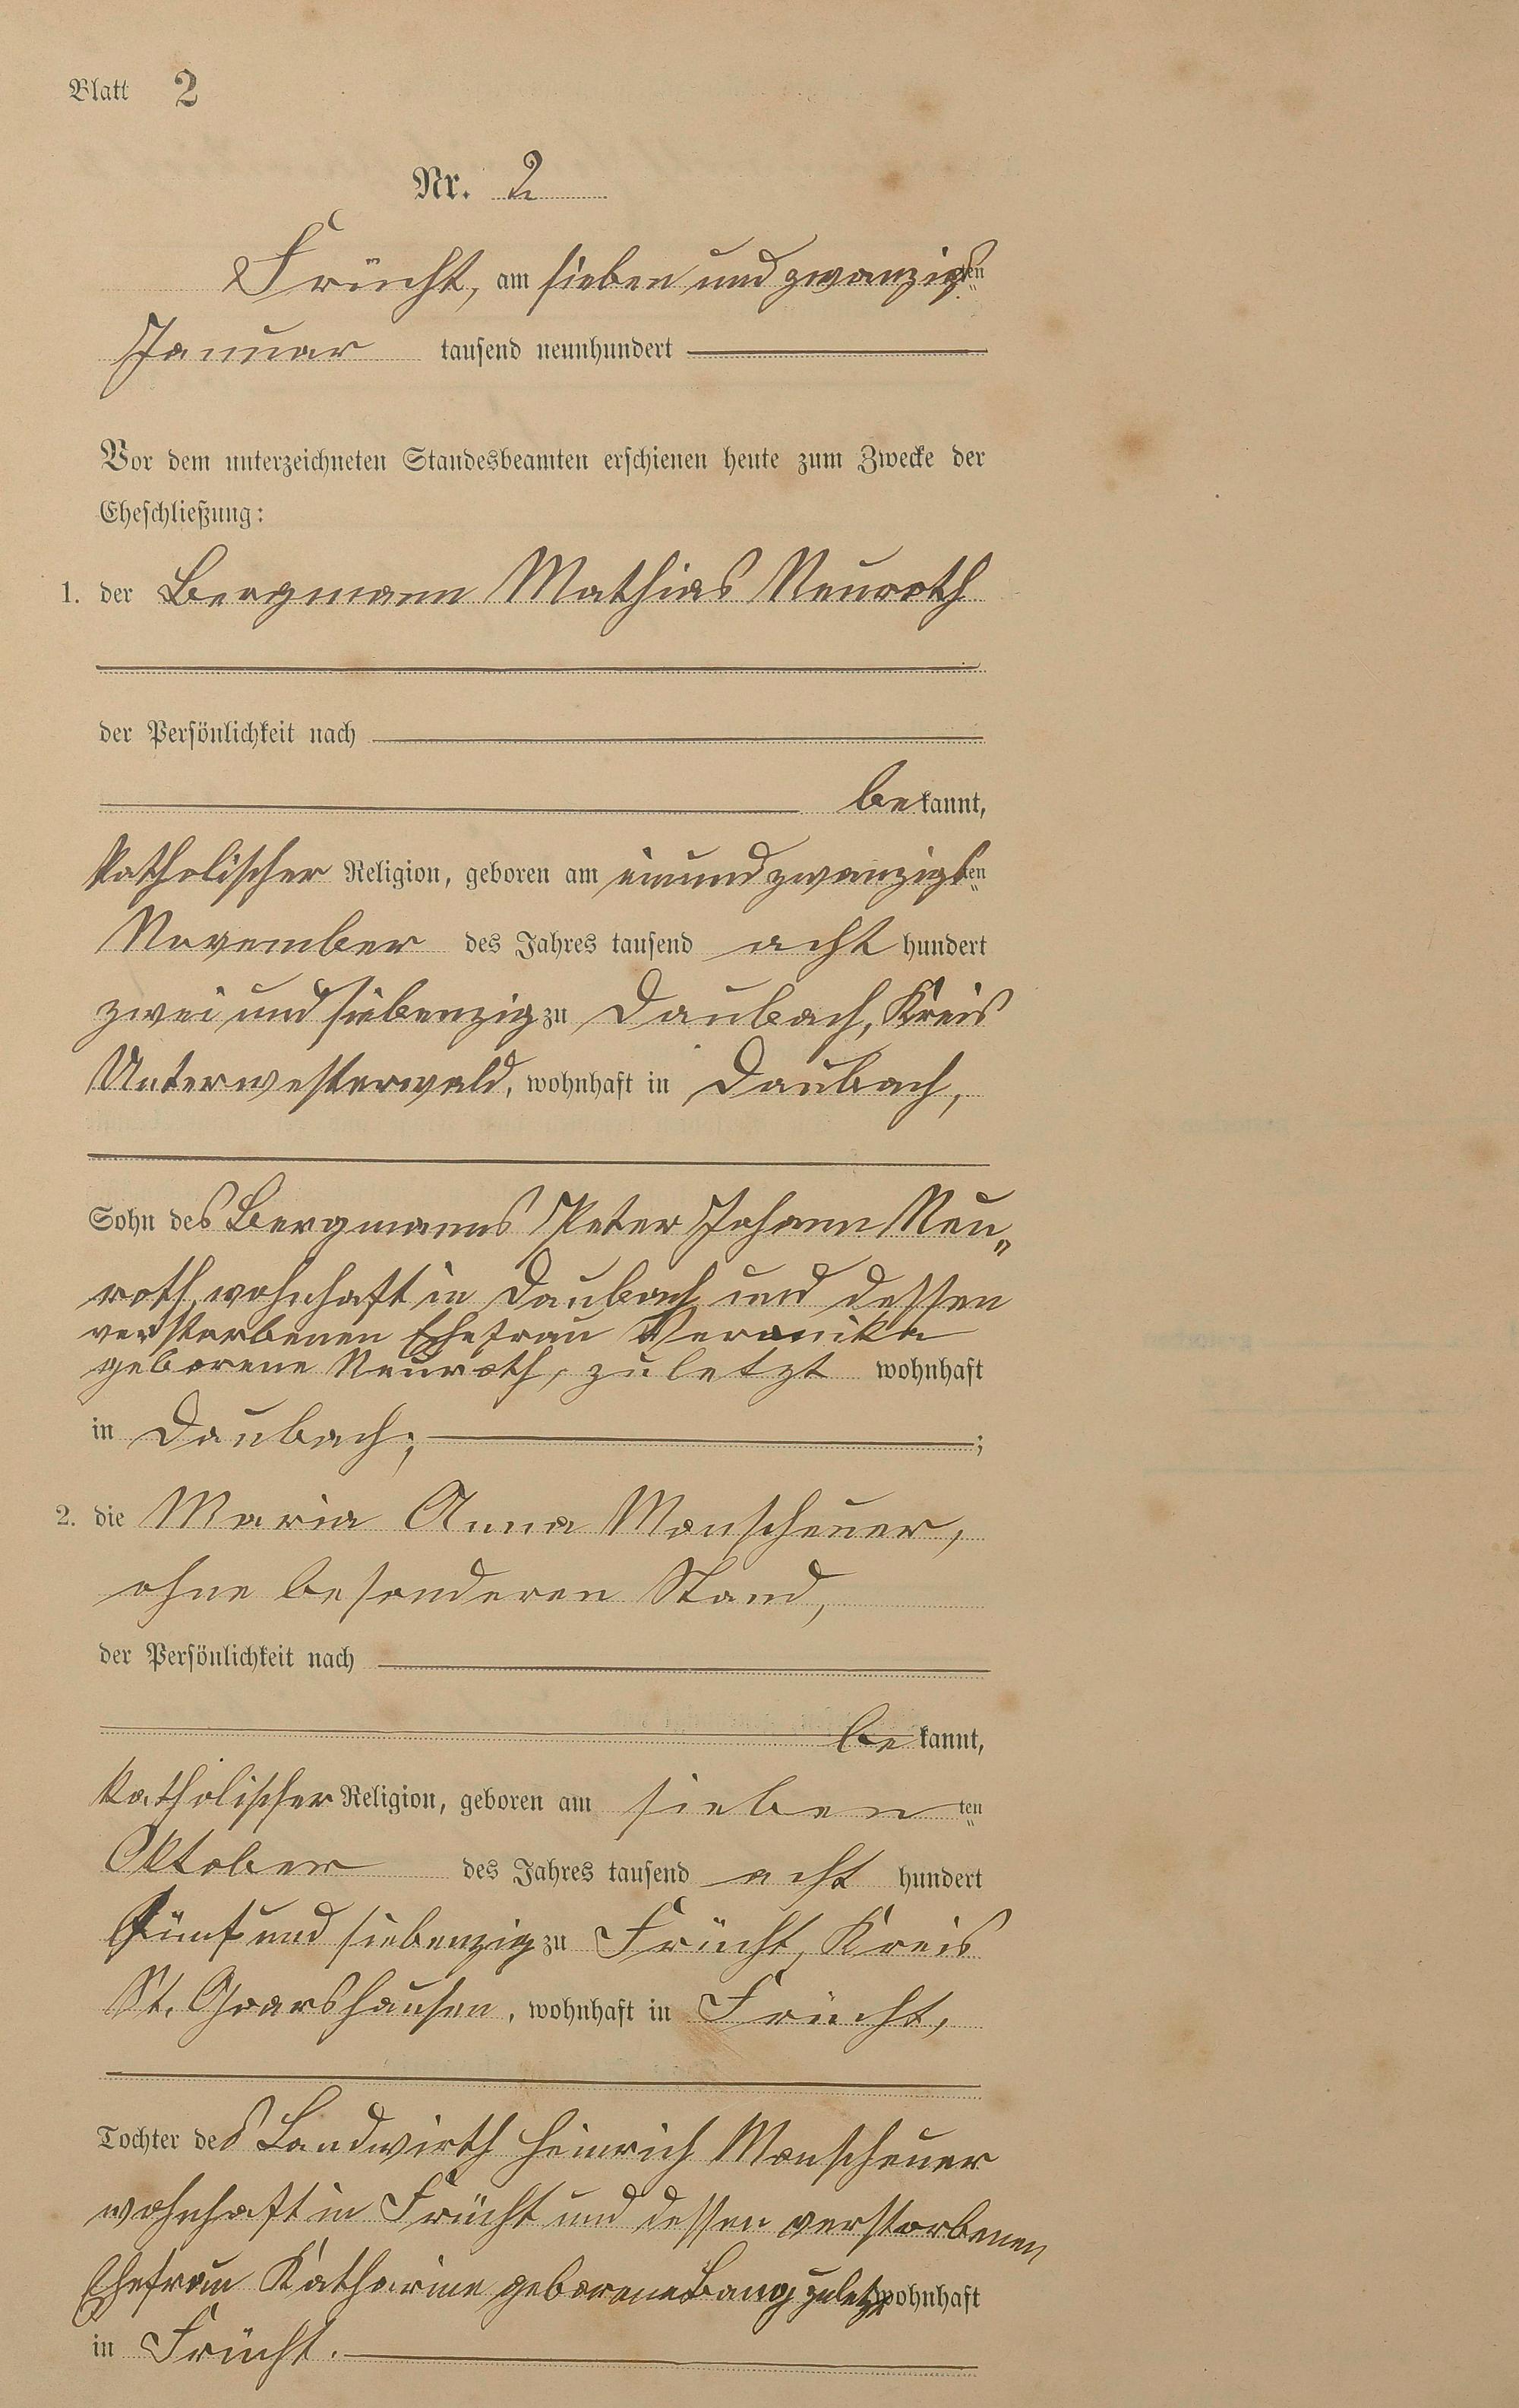 Blatt 2
Nr. 2
Frücht, am sieben und zwanzigsten
Januar tausend neunhundert
Vor dem unterzeichneten Standesbeamten erschienen heute zum Zwecke der
Eheschließung:
1. der Bergmann Mathias Neuroth
der Persönlichkeit nach
bekannt,
katholischer Religion, geboren am einundzwanzigsten
November des Jahres tausend acht hundert
zwei und siebenzig zu Daubach, Kreis
Unterwesterwald, wohnhaft in Daubach,
Sohn des Bergmanns Peter Johann Neu„
roth, wohnhaft in Daubach und dessen
verstorbenen Ehefrau Veronika
geborene Neuroth, zuletzt wohnhaft
in Daubach; ;
2. die Maria Anna Monscheuer,
ohne besonderen Stand,
der Persönlichkeit nach
bekannt,
katholischer Religion, geboren am siebenten
Oktober des Jahres tausend acht hundert
Fünf und siebenzig zu Frücht, Kreis
St. Goarshausen, wohnhaft in Frücht,
Tochter des Landwirth Heinrich Monscheuer
wohnhaft in Frücht und dessen verstorbenen
Ehefrau Katharine geborene Bang zuletzt wohnhaft
in Frücht.